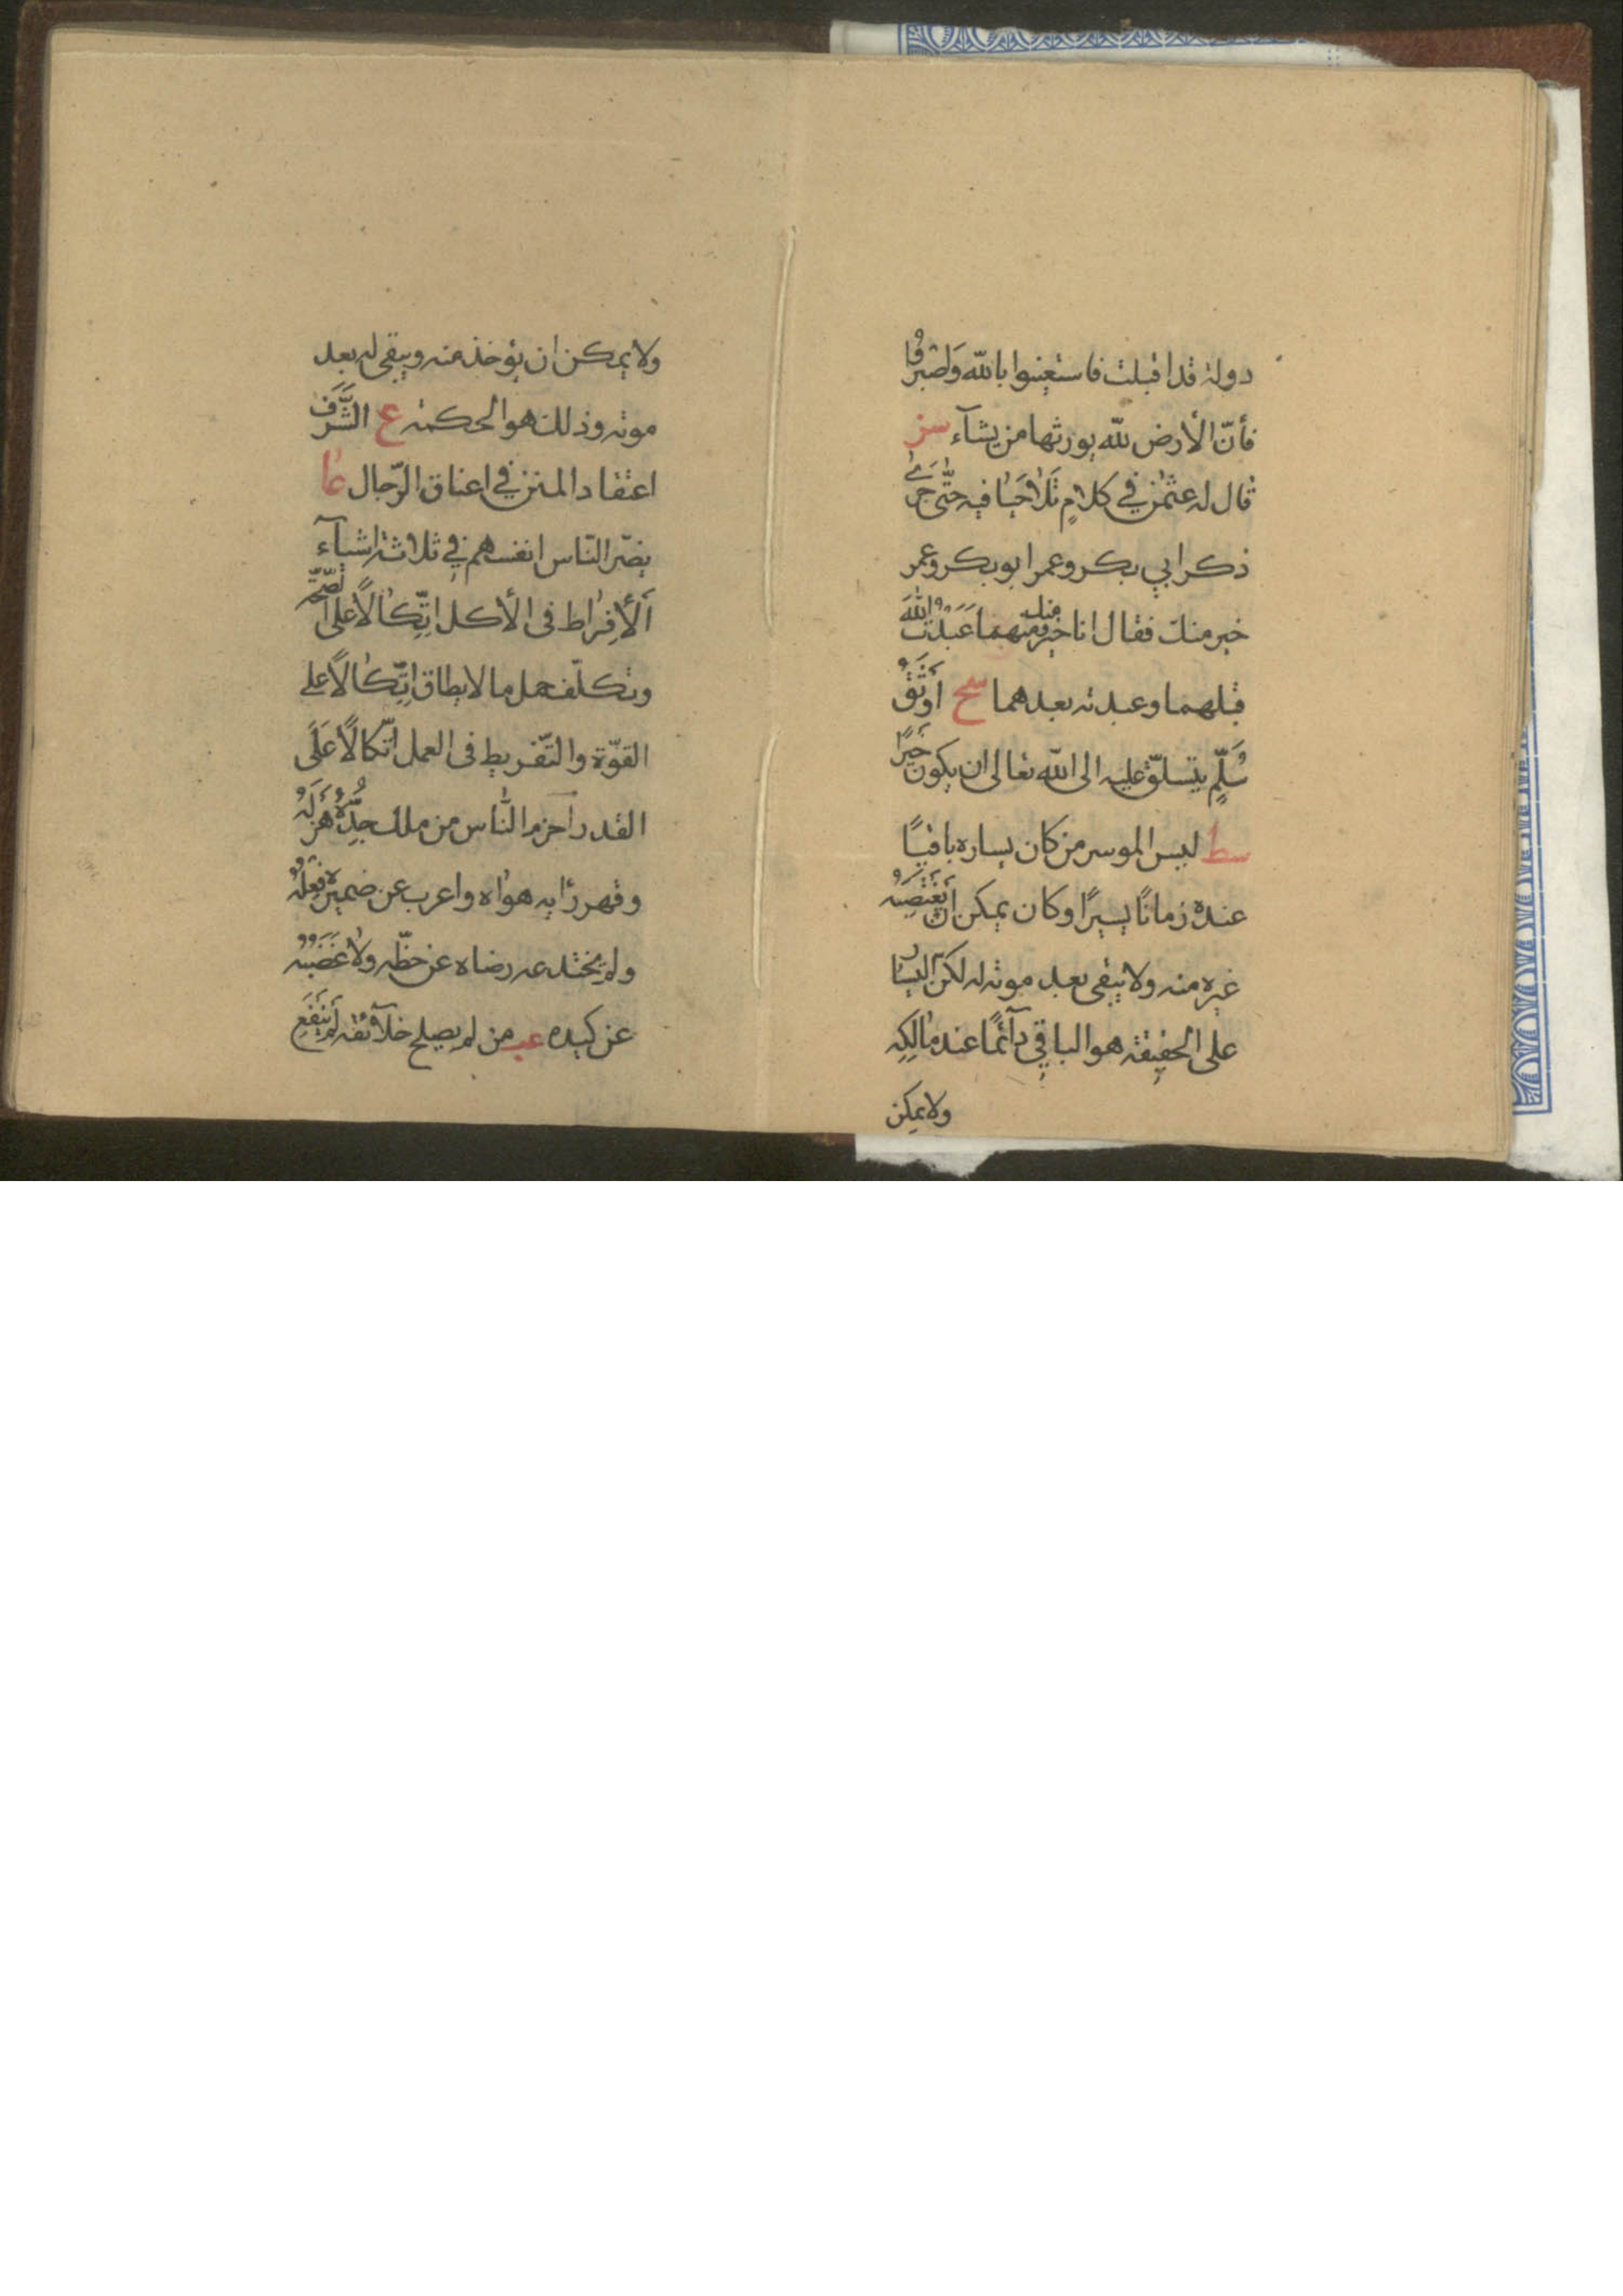 دولة قد اقبلت فاستعينوا بالله وَاصْبِرُوا
فأنّ الأرض لله يورثها من يشآء سز
قال له عثمٰن في كلامٍ تَلَاحَيا فيه حتّى جَرىٰ
ذكر ابي بكر وعمر ابو بكر وعمر
خير منك فقال انا خير منك ومنهما عَبَدْتُ اللهَ
قبلهما وعبدته بعدهما سح اَوْثَقُ
سُلَّمٍ يتسلّق عليه الى الله تعالى ان يكون خَيِّرًا
سط ليس الموسر من كان يساره باقيًا
عنده زمانًا يسيرًا وكان يمكن اَنْ يَغْتَصِبَهُ
غيره منه ولا يبقى بعد موته له لكنّ اليسار
على الحقيقة هو الباقي دآئمًا عند مٰالِكِهِ
ولا يمكن
ولا يمكن ان يؤخذ منه ويبقى له بعد
موته وذلك هو الحكمة ع الشَّرَف
اعتقاد المنن في اعناق الرّجال عا
يضرّ النّاس انفسهم في ثلاثة اشيآء
اَلأِفْرٰاط فى الأكل اتِّكٰالًا على الصّحّة
وتكلّف حمل ما لا يطاق اِتِّكٰالًا على
القوّة والتّفريط فى العمل اتّكالًا عَلَى
القدر احزم النّاس من ملك جِدُّهُ هَزْلَهُ
وقهر رأيه هواه واعرب عن ضميره فِعْلُهُ
ولم يختدعه رضاه عن حظّه ولا غَضَبُهُ
عن كيده عب من لم يصلح خلآئقه لَمْ يَنْفَعِ